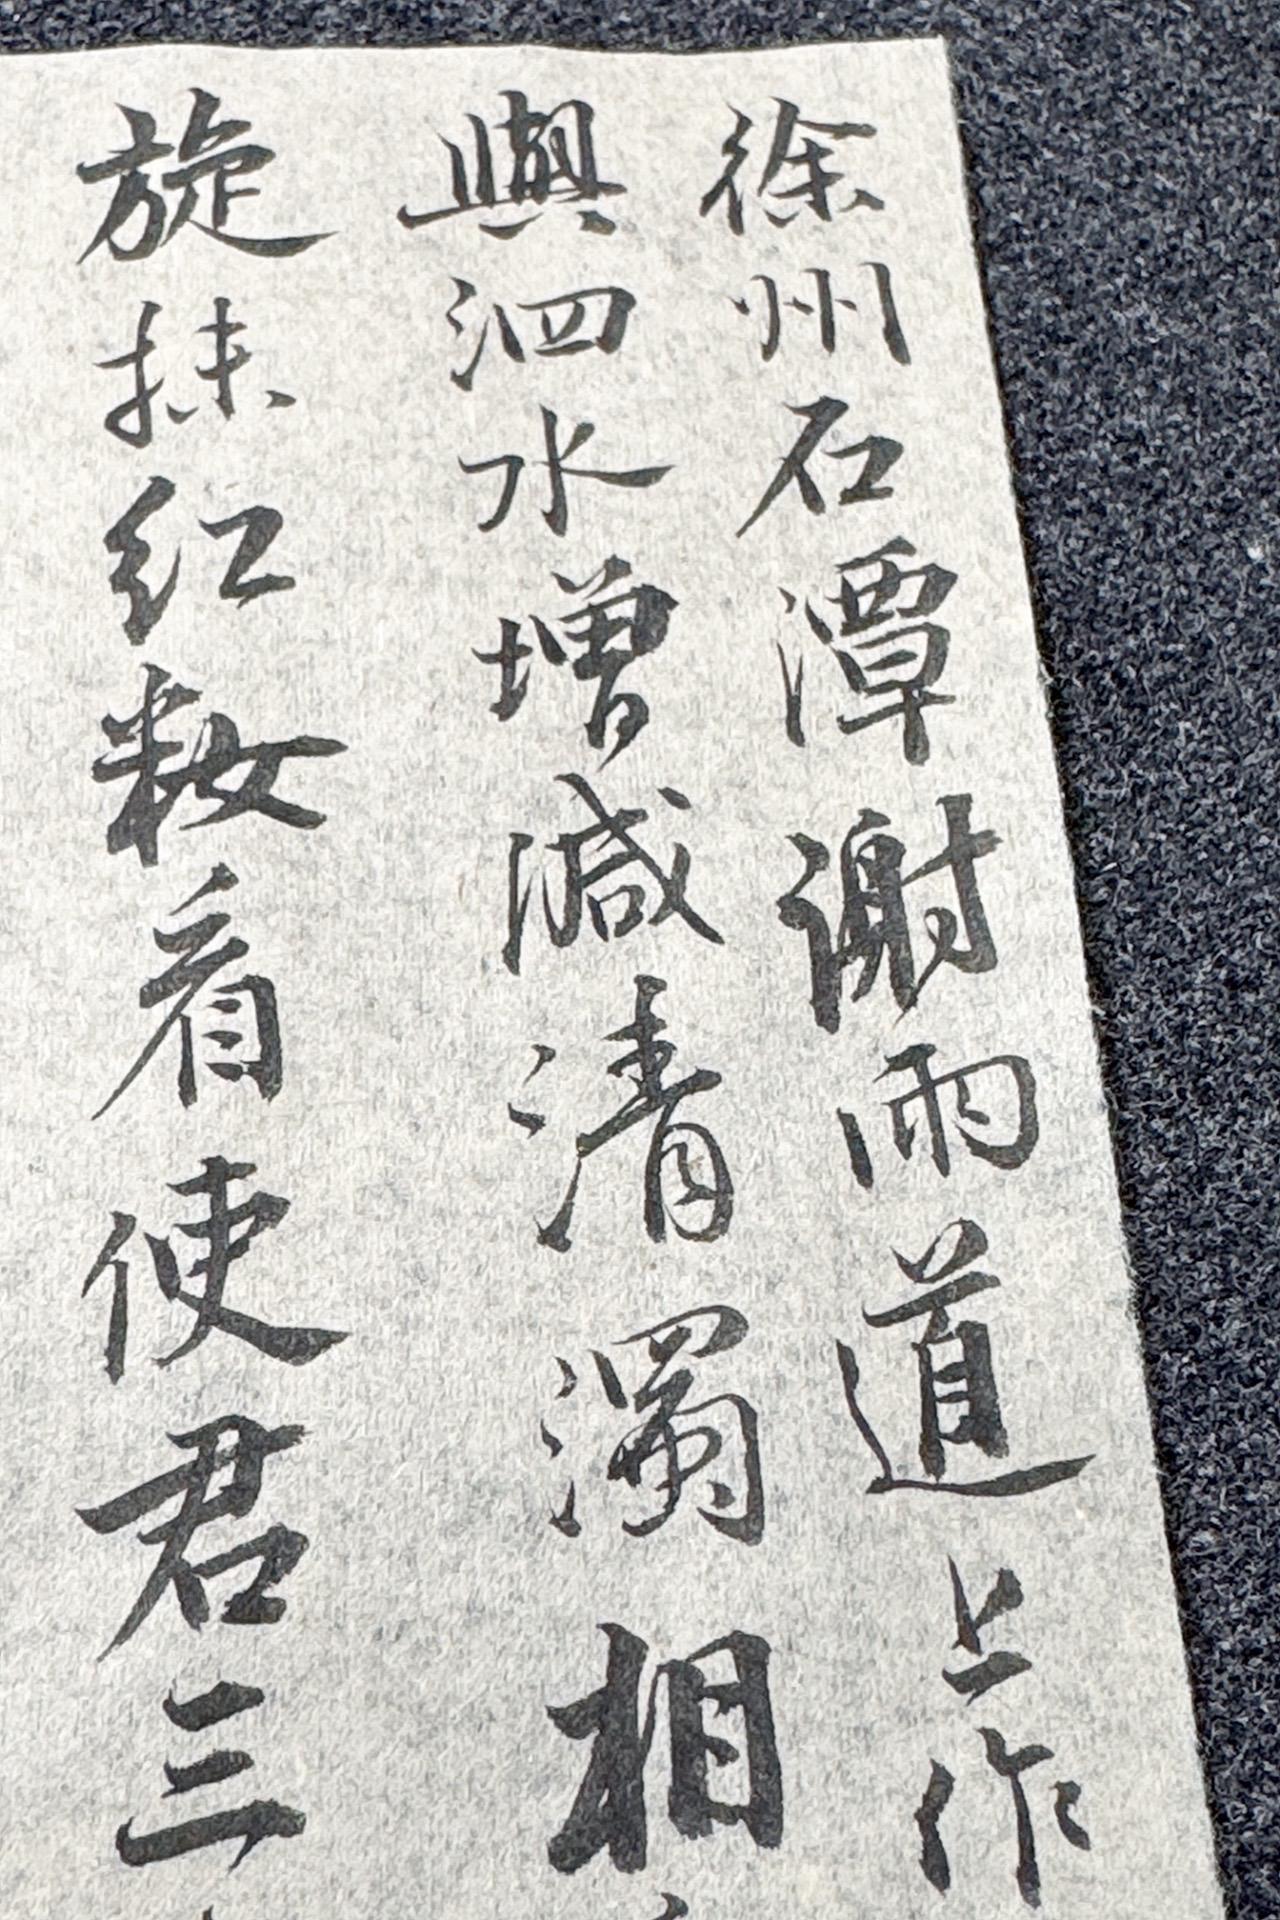 徐州石潭謝雨道上作
與泗水增減清濁相
旋抹红粧看使君三